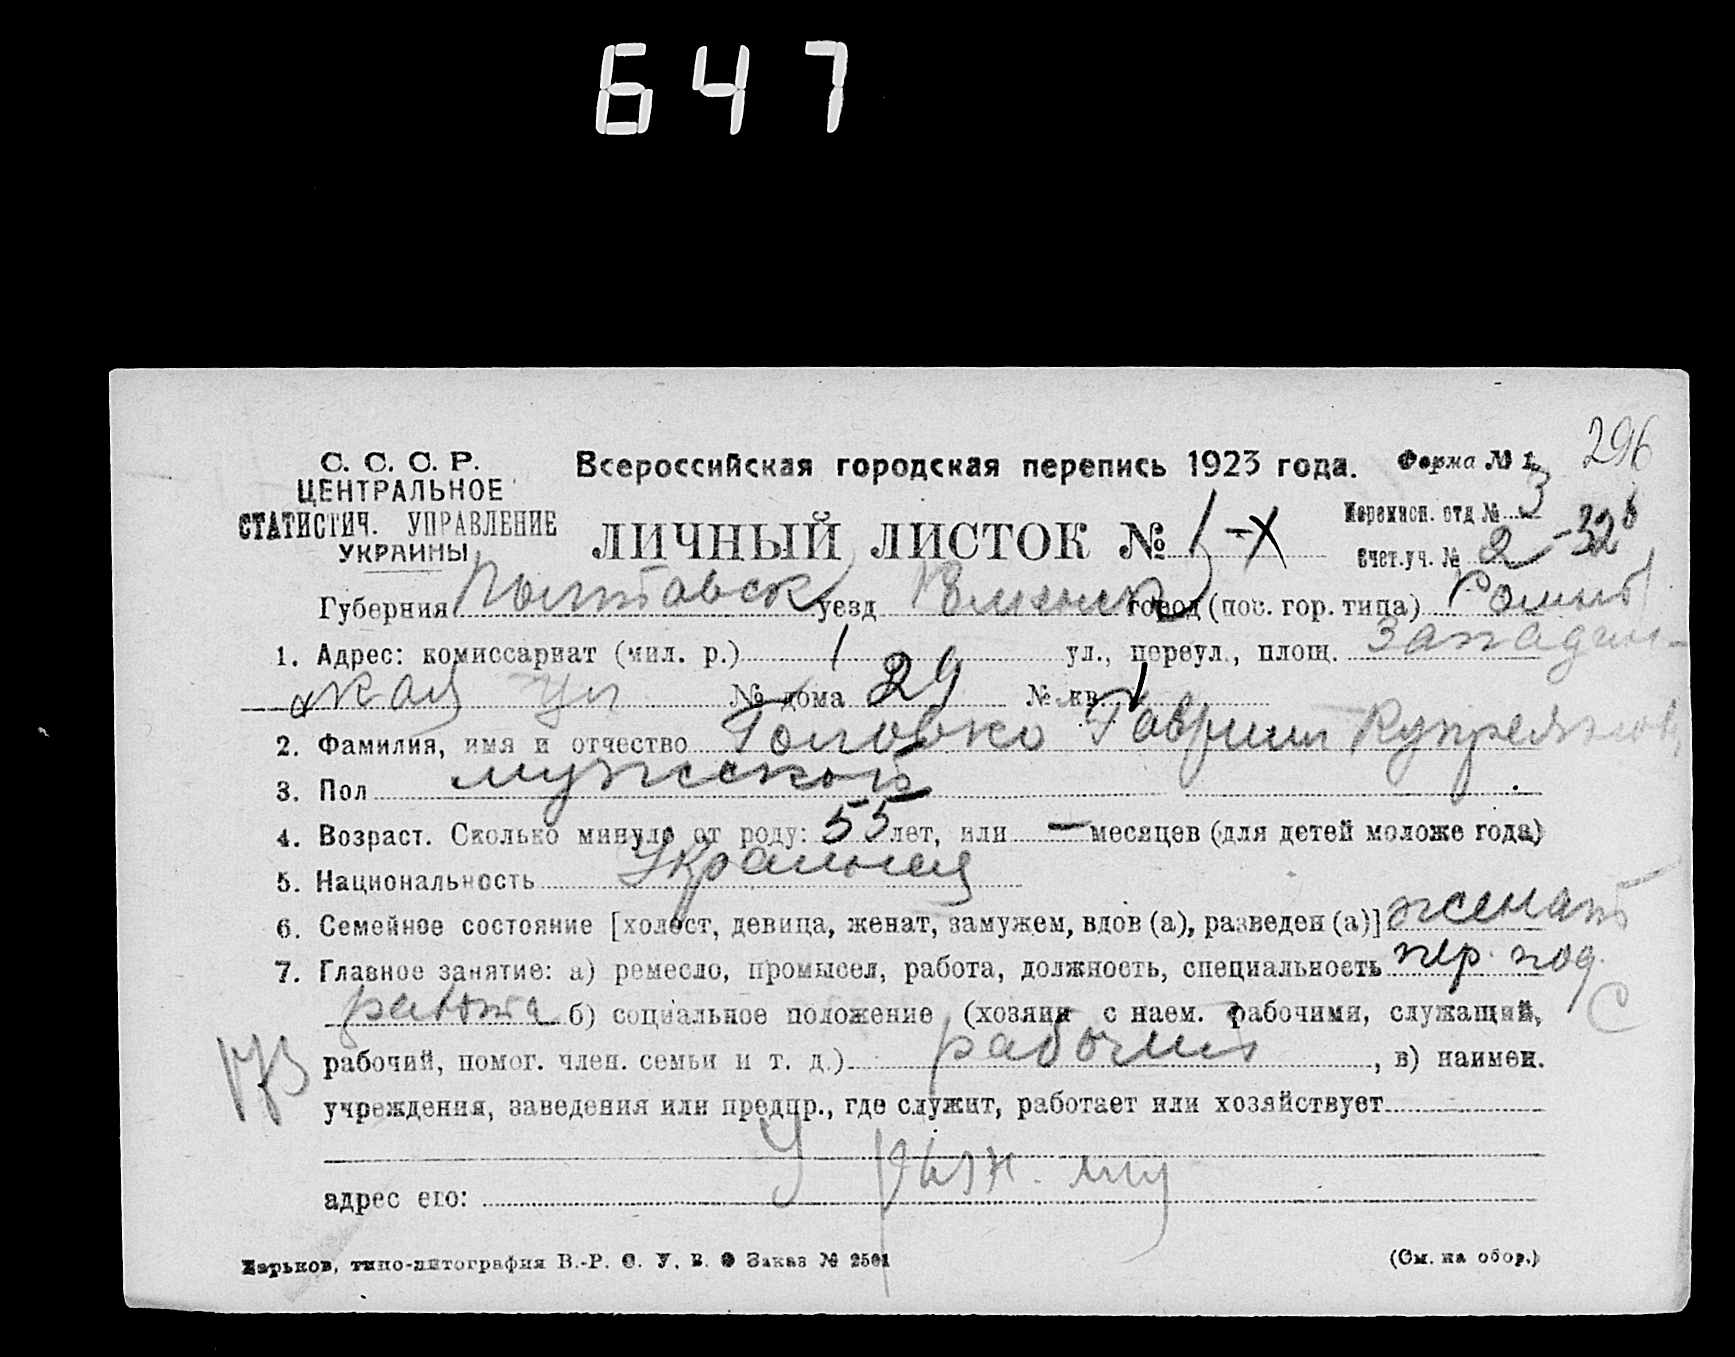 647
296
С. С. С. Р.
ЦЕНТРАЛЬНОЕ
СТАТИСТИЧ. УПРАВЛЕНИЕ
УКРАИНЫ
Всероссийская городская перепись 1923 года.
Форма № 1.
ЛИЧНЫЙ ЛИСТОК № 1-X
Переписн. отд № 3
Счет.уч. № 2 -32
Губерния Полтавск уезд Роменск город (пос. гор. типа) Ромны
1. Адрес: комиссариат (мил. р.) 1 ул., переул., площ. Западин-
ская ул № дома 29 № кв. 1
2. Фамилия, имя и отчество Головко Гавриил Купреянов
3. Пол мужской
4. Возраст. Сколько минуло от роду: 55 лет, или — месяцев (для детей моложе года)
5. Национальность Украинец
6. Семейное состояние [холост, девица, женат, замужем, вдов (а), разведен (а)] женат
7. Главное занятие: а) ремесло, промысел, работа, должность, специальность пер. под.
работа б) социальное положение (хозяин с наем. рабочими, служащий,
С
рабочий, помог. член. семьи и т. д.) рабочий, в) наимен.
173
учреждения, заведения или предпр., где служит, работает или хозяйствует
У
адрес его:
Харьков, типо-литография В.-Р. С. У. В. О Заказ № 2501
(См. на обор.)